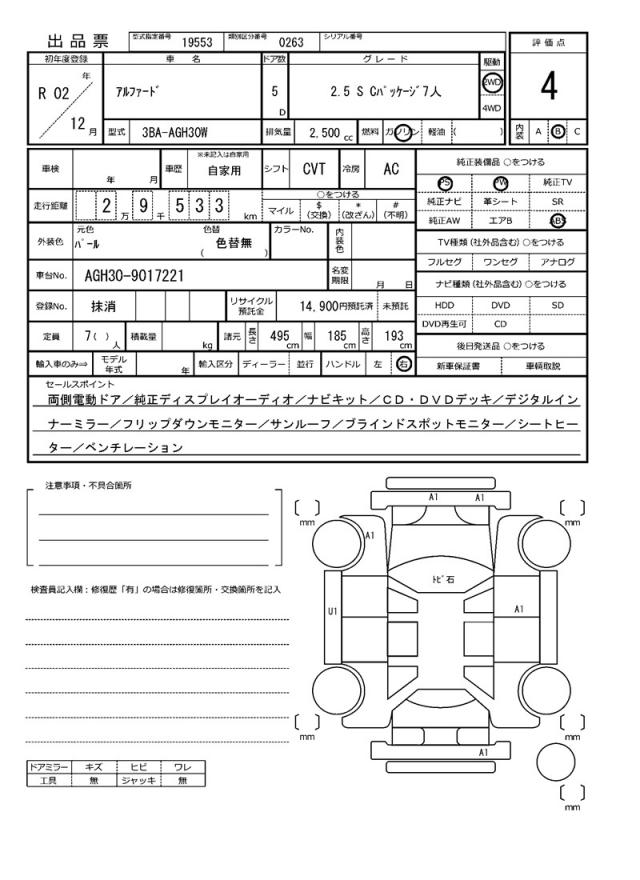 出品票 型式指定番号 19553 類別区分番号 0263 シリアル番号
評価点
初年度登録 車名 ドア数 グレード 駆動
R 02 年 12 月 アルファード 5 D 2.5 S Cパッケージ 7人 2WD 4WD
4
型式 3BA-AGH30W 排気量 2,500 cc 燃料 ガソリン 軽油 ( )
内装 A B C
車検 年 月 車歴 ※未記入は自家用 自家用 シフト CVT 冷房 AC
純正装備品 ○をつける
PS PW 純正TV
走行距離 2 万 9 千 5 3 3 km
○をつける
マイル $ (交換) * (改ざん) # (不明)
純正ナビ 革シート SR
純正AW エアB ABS
外装色 元色 パール 色替 色替無 ( ) カラーNo. 内装色
TV種類 (社外品含む) ○をつける
フルセグ ワンセグ アナログ
車台No. AGH30-9017221 名変期限 月 日
ナビ種類 (社外品含む) ○をつける
登録No. 抹消 リサイクル預託金 14,900円預託済 未預託
HDD DVD SD
DVD再生可 CD
定員 7( ) 人 積載量 kg 諸元 長さ 495 cm 幅 185 cm 高さ 193 cm
後日発送品 ○をつける
輸入車のみ⇒ モデル年式 年 輸入区分 ディーラー 並行 ハンドル 左 右
新車保証書 車輌取説
セールスポイント
両側電動ドア／純正ディスプレイオーディオ／ナビキット／ＣＤ・ＤＶＤデッキ／デジタルイン
ナーミラー／フリップダウンモニター／サンルーフ／ブラインドスポットモニター／シートヒー
ター／ベンチレーション
注意事項・不具合箇所
検査員記入欄：修復歴「有」の場合は修復箇所・交換箇所を記入
ドアミラー キズ ヒビ ワレ
工具 無 ジャッキ 無
A1 A1
mm mm
A1
トビ石
U1 A1
mm mm
A1
mm